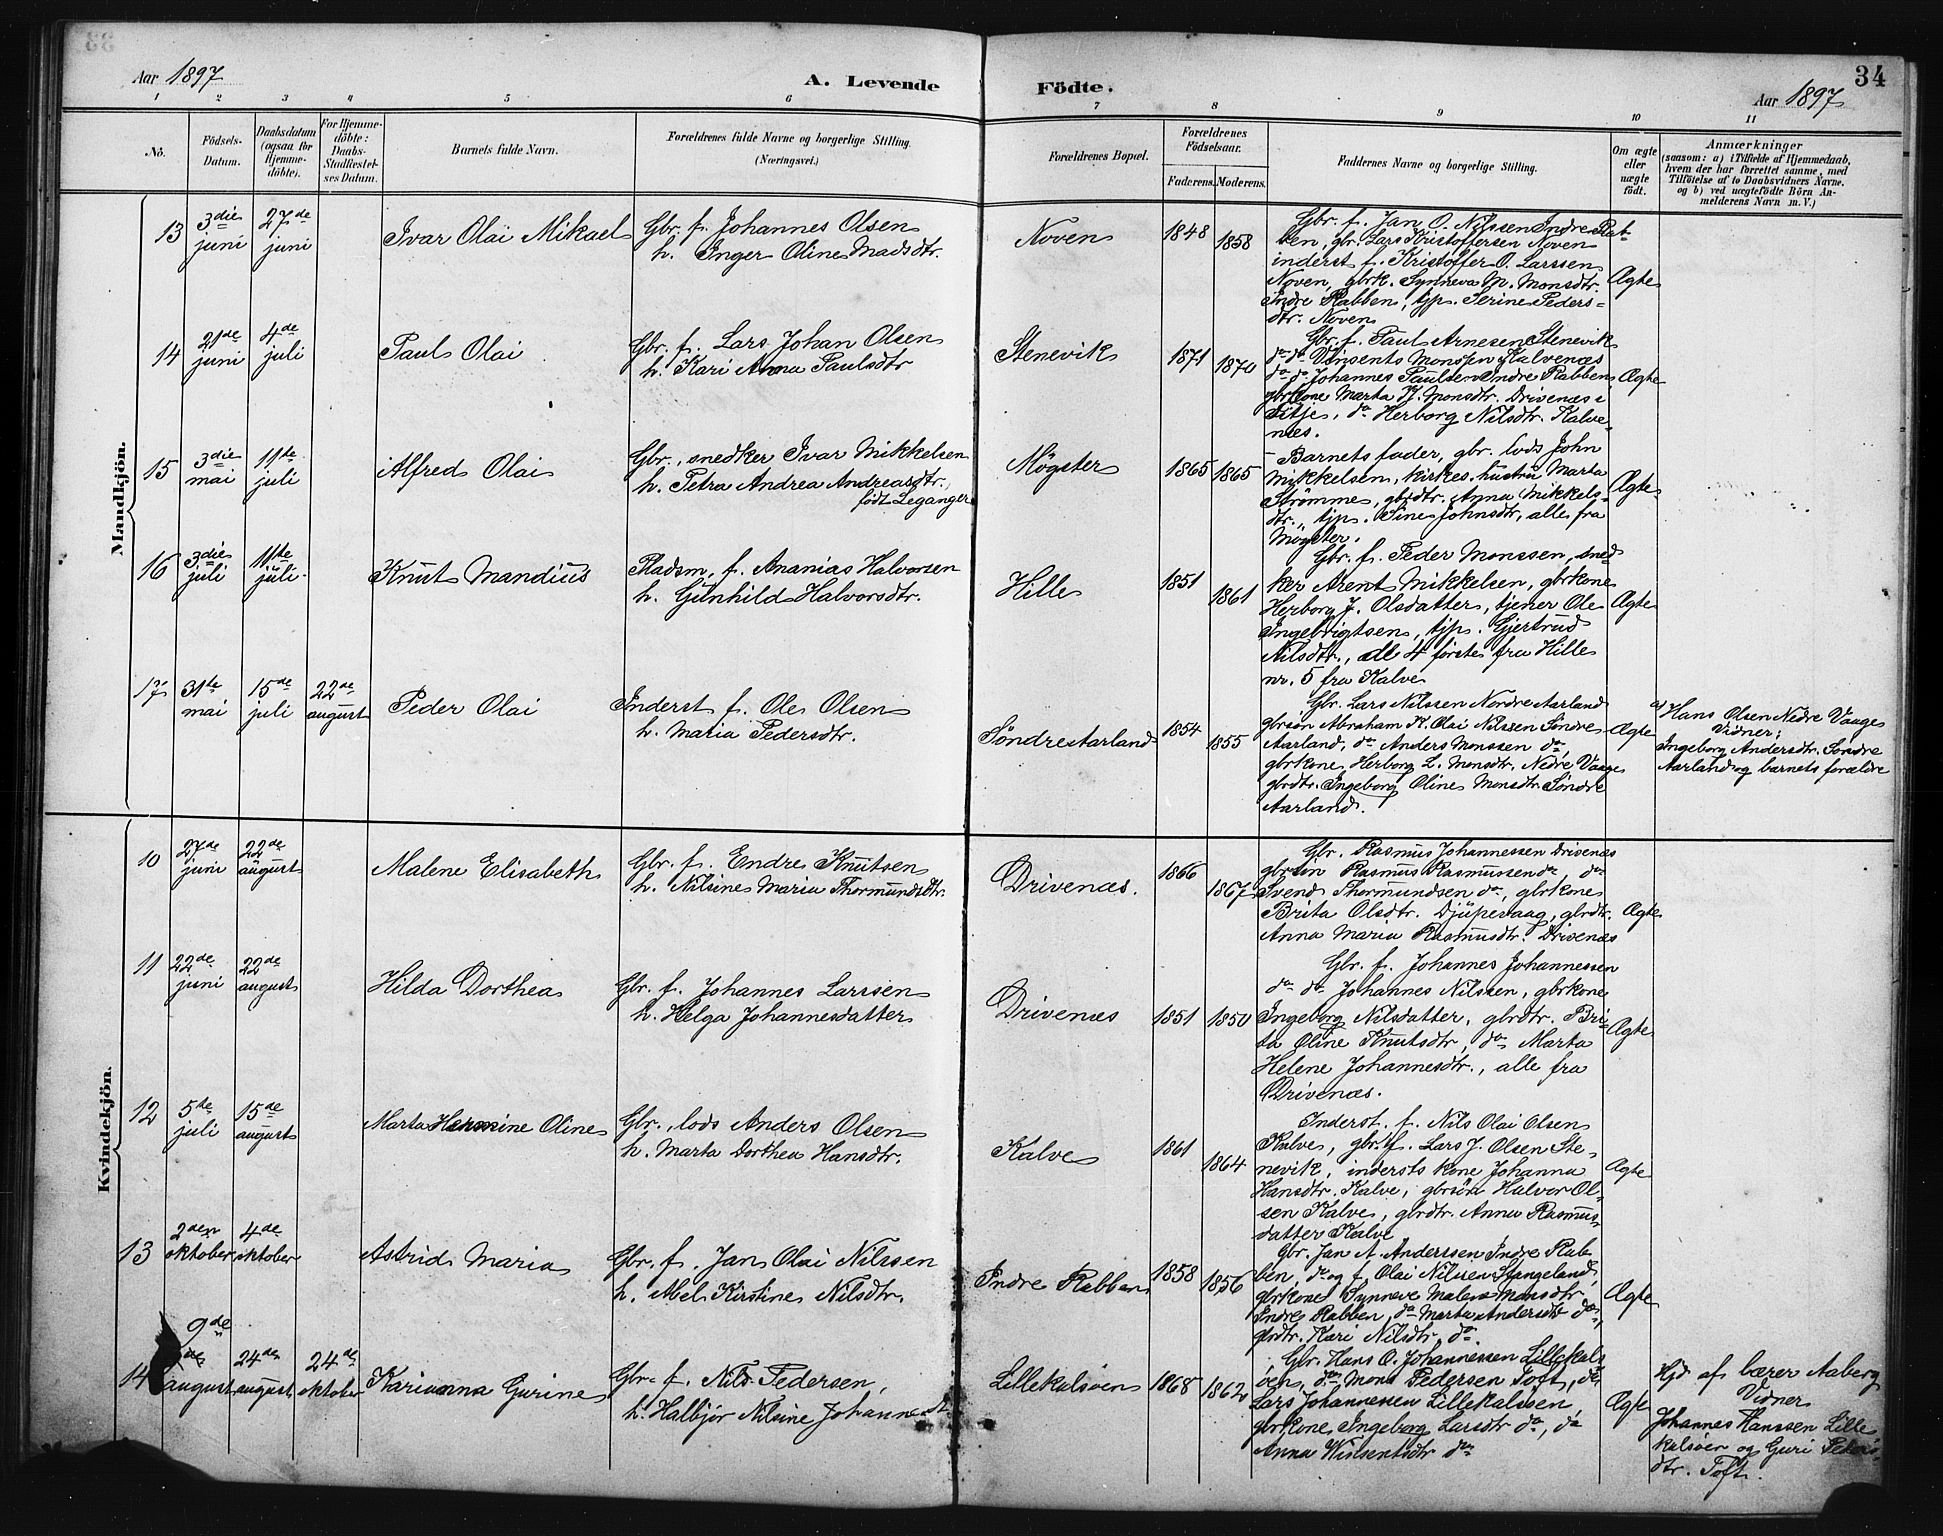 34
Aar 1897
A. Levende
Födte.
Aar 1897
1 2 3 4 5 6 7 8 9 10 11
No.
Födsels-
Datum.
Daabsdatum
(ogsaa for
Hjemme-
döbte).
For Hjemme-
döbte:
Daabs-
Stadfæstel-
ses Datum.
Barnets fulde Navn.
Forældrenes fulde Navne og borgerlige Stilling.
(Næringsvei.)
Forældrenes Bopæl.
Forældrenes
Födselsaar.
Faderens. Moderens.
Faddernes Navne og borgerlige Stilling.
Om ægte
eller
uægte
født.
Anmærkninger
(saasom: a) i Tilfælde af Hjemmedaab,
hvem der har forrettet samme, med
Tilföielse af to Daabsvidners Navne.
og b) ved uægtefödte Börn An-
melderens Navn m. V.)
Mandkjön.
13
3die
juni
27de
juni
Ivar Olai Mikael
Gbr. f. Johannes Olsen
h. Inger Oline Madsdtr.
Noven
1848
1858
Gbr. f. Jan O. Nilssen Indre Rab-
ben, gbr. Lars Kristoffersen Noven
inderst f. Kristoffer O. Larssen
Noven, gbrk. Synneva M. Monsdtr.
Indre Rabben, tjp. Serine Peders-
dtr. Noven
Ægte
14
21de
juni
4de
juli
Paul Olai
Gbr. f. Lars Johan Olsen
h. Kari Anna Paulsdtr
Stenevik
1871
1870
Gbr. f. Paul Arnesen Stenevik
do do Vinsents Monsen Kalvenæs
do do Johannes Paulsen Indre Rabben
gbrkone Marta K. Monsdtr. Drivenæs i
Fitje, do Herborg Nilsdtr. Kalve-
næs.
Ægte
15
3die
mai
11te
juli
Alfred Olai
Gbr., snedker Ivar Mikkelsen
h. Petra Andrea Andreasdtr.,
født Leganger
Møgster
1865
1865
Barnets fader, gbr. lods John
Mikkelsen, kirkes. hustru Marta
Strömme, gbrdtr. Anna Mikkels-
dtr., tjp. Sine Johnsdtr, alle fra
Møgster.
Ægte
16
3die
juli
11te
juli
Knut Mandius
Pladsm. f. Ananias Halvorsen
h. Gunhild Halvorsdtr.
Hille
1851
1861
Gbr. f. Peder Monssen, sned-
ker Arent Mikkelsen, gbrkone
Herborg J. Olsdatter, tjener Ole
Ingebrigtsen, tjp. Gjertrud
Nilsdtr., de 4 første fra Hille
nr. 5 fra Kalve
Ægte
17
31te
mai
15de
juli
22de
august
Peder Olai
Inderst f. Ole Olsen
h. Maria Pedersdtr.
Søndre Aarland
1854
1855
Gbr. Lars Nilssen Nordre Aarland
gbrsøn Abraham K. Olai Nilssen Søndre
Aarland, do Anders Monssen do,
gbrkone Herborg L. Monsdtr. Nedre Vaage
gbrdtr. Ingeborg Oline Monsdtr. Søndre
Aarland.
Ægte
a) Hans Olsen Nedre Vaage
Vidner:
Ingeborg Andersdtr. Søndre
Aarland og barnets forældre
Kvindekjön.
10
27de
juni
22de
august
Malene Elisabeth
Gbr. f. Endre Knutsen
h. Nilsine Maria Thormundsdtr.
Drivenæs.
1866
1867
Gbr. Rasmus Johannessen Drivenæs
gbrsøn Rasmus Rasmussen do, do
Svend Thormundsen do, gbrkone
Brita Olsdtr. Djupevaag, gbrdtr.
Anna Maria Rasmusdtr. Drivenæs
Ægte
11
22de
juni
22de
august
Hilda Dorthea
Gbr. f. Johannes Larssen
h. Helga Johannesdatter
Drivenæs
1851
1850
Gbr. f. Johannes Johannessen
do do Johannes Nilssen, gbrkone
Ingeborg Nilsdatter, gbrdtr. Bri-
ta Oline Knutsdtr, do Marta
Helene Johannesdtr., alle fra
Drivenæs.
Ægte
12
5te
juli
15de
august
Marta Hermine Oline
Gbr., lods Anders Olsen
h. Marta Dorthea Hansdtr.
Kalve
1861
1864
Inderst. f. Nils Olai Olsen
Kalve, gbr. f. Lars J. Olsen Ste-
nevik, indersts kone Johanna
Hansdtr. Kalve, gbrsøn Halvor Ol-
sen Kalve, gbrdtr. Anna Rasmus-
datter Kalve
Ægte
13
2den
oktober
4de
oktober
Astrid Maria
Gbr. f. Jan Olai Nilssen
h. Abel Kirstine Nilsdtr.
Indre Rabben
1858
1856
Gbr. Jan A. Anderssen Indre Rab-
ben, do og f. Olai Nilssen Stangeland,
gbrkone Synneve Malene Monsdtr
Indre Rabben, do Marta Andersdtr do,
gbrdtr. Kari Nilsdtr. do.
Ægte
14
9de
august
24de
august
24de
oktober
Karianna Gurine
Gbr. f. Nils Pedersen,
h. Halbjør Nilsine Johannesdt
Lillekalsøen
1868
1862
Gbr. Hans O. Johannessen Lillekals-
øen, do Mons Pedersen Toft, do
Lars Johannessen Lillekalsøen,
gbrkone Ingeborg Larsdtr do, do
Anna Winsentsdtr do
Ægte
Hjd. af lærer Aaberg
Vidner
Johannes Hanssen Lille
kalsøen og Guri Peders
dtr. Toft.